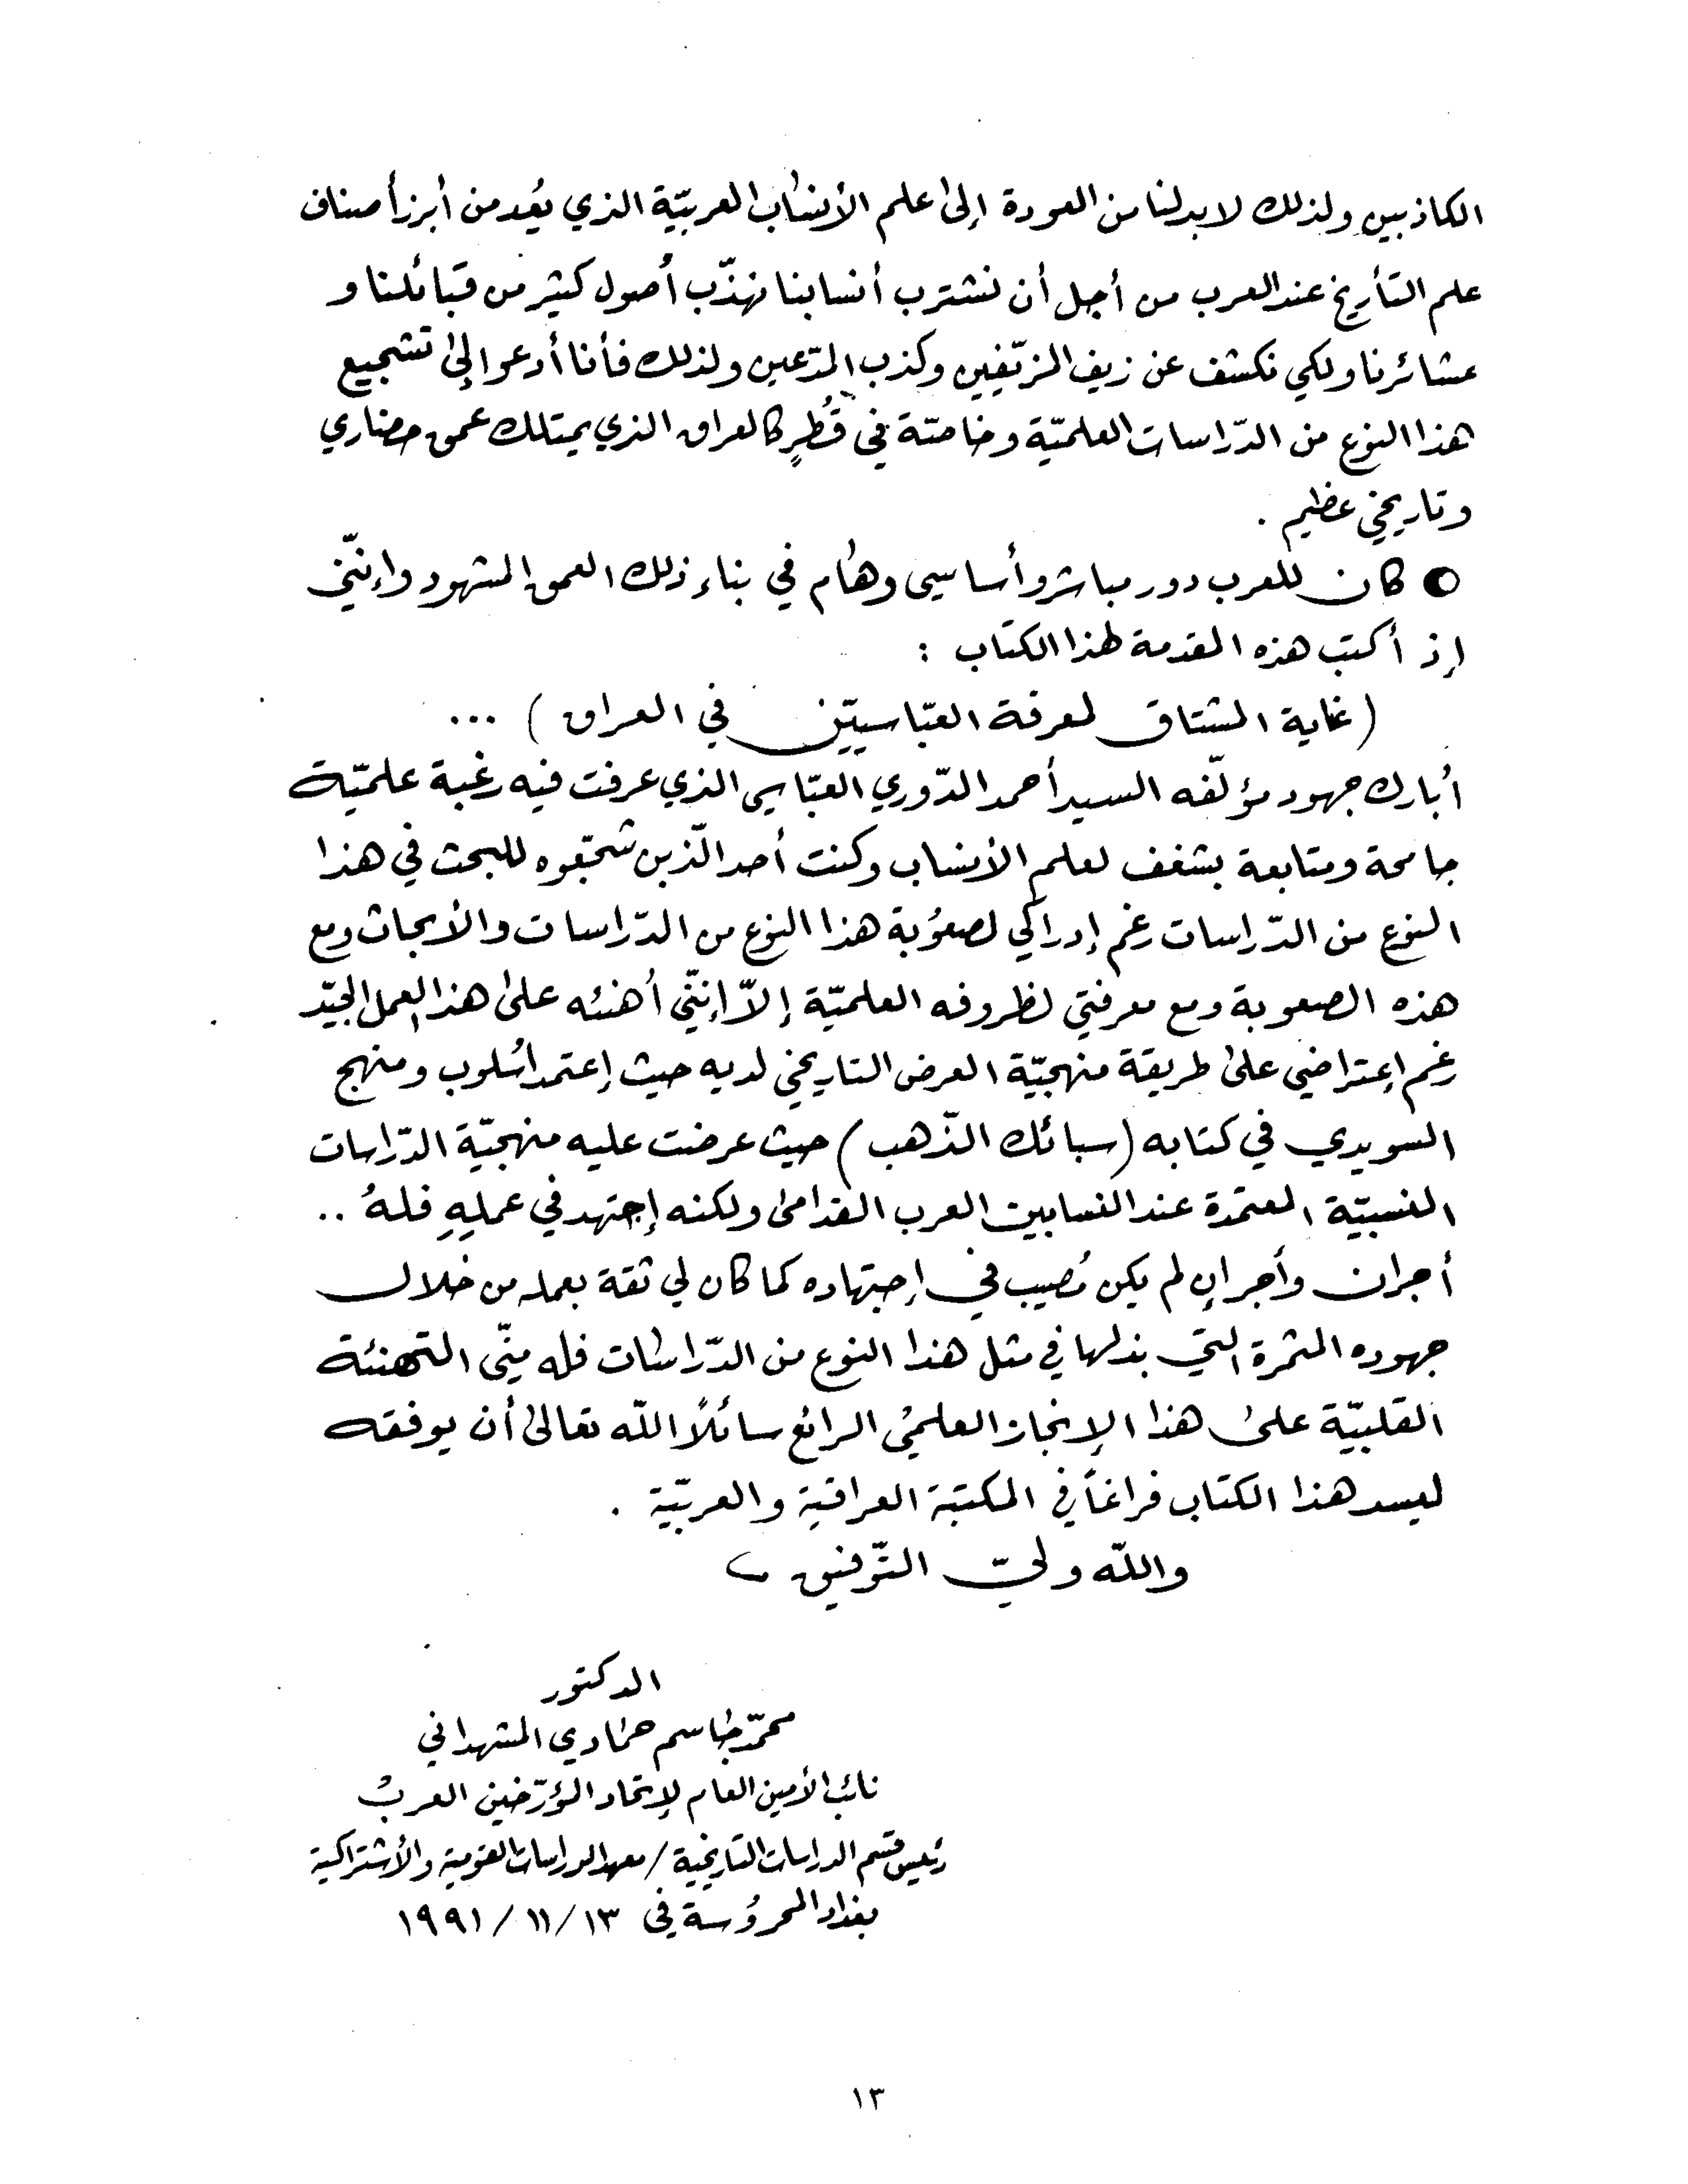 الكاذبين ولذلك لابد لنا من العودة إلى علم الأنساب العربيّة الذي يُعد من أبرز أصناف
علم التأريخ عند العرب من أجل أن نشترب أنسابنا نهذّب أصول كثير من قبائلنا و
عشائرنا ولكي نكشف عن زيف المزيّفين وكذب المدّعين ولذلك فأنا أدعوا إلى تشجيع
هذا النوع من الدّراسات العلميّة وخاصّة في قُطرٍ كالعراق الذي يمتلك عمق حضاري
وتاريخي عظيم .
● كان للعرب دور مباشر وأساسي وهام في بناء ذلك العمق المشهود وإنّني
إذ أكتب هذه المقدمة لهذا الكتاب :
( غاية المشتاق لمعرفة العبّاسيّين في العراق ) ...
أُبارك جهود مؤلّفه السيد أحمد الدّوري العبّاسي الذي عرفت فيه رغبة علميّة
جامحة ومتابعة بشغف لعلم الأنساب وكنت أحد الّذين شجّعوه للبحث في هذا
النوع من الدّراسات رغم إدراكي لصعوُبة هذا النوع من الدّراسات والأبحاث ومع
هذه الصعوبة ومع معرفتي لظروفه العلميّة إلاّ إنّني أهنئه على هذا العمل الجيّد
رغم إعتراضي على طريقة منهجيّة العرض التاريخي لديه حيث إعتمد أسُلوب ومنهج
السويدي في كتابه (سبائك الذّهب) حيث عرضت عليه منهجيّة الدّراسات
النسبيّة المعتمدة عند النسابين العرب القدامى ولكنه إجتهد في عملِهِ فلهُ ..
أجران وأجر إن لم يكن مُصيب في إجتهاده كما كان لي ثقة بعمله من خلال
جهوده المثمرة التي بذلها في مثل هذا النوع من الدّراسات فله منّي التهنئة
القلبيّة على هذا الإنجاز العلمي الرائع سائلاً الله تعالى أن يوفقه
ليسد هذا الكتاب فراغاً في المكتبة العراقية والعربيّة .
والله وليّ التّوفيق
الدكتور
محمّد جاسم حمادي المشهداني
نائب الأمين العام لإتحاد المؤرّخين العرب
رئيس قسم الدراسات التاريخية / معهد الدراسات القومية والأشتراكية
بغداد المحروُسة في ١٣/ ١١/ ١٩٩١
١٣